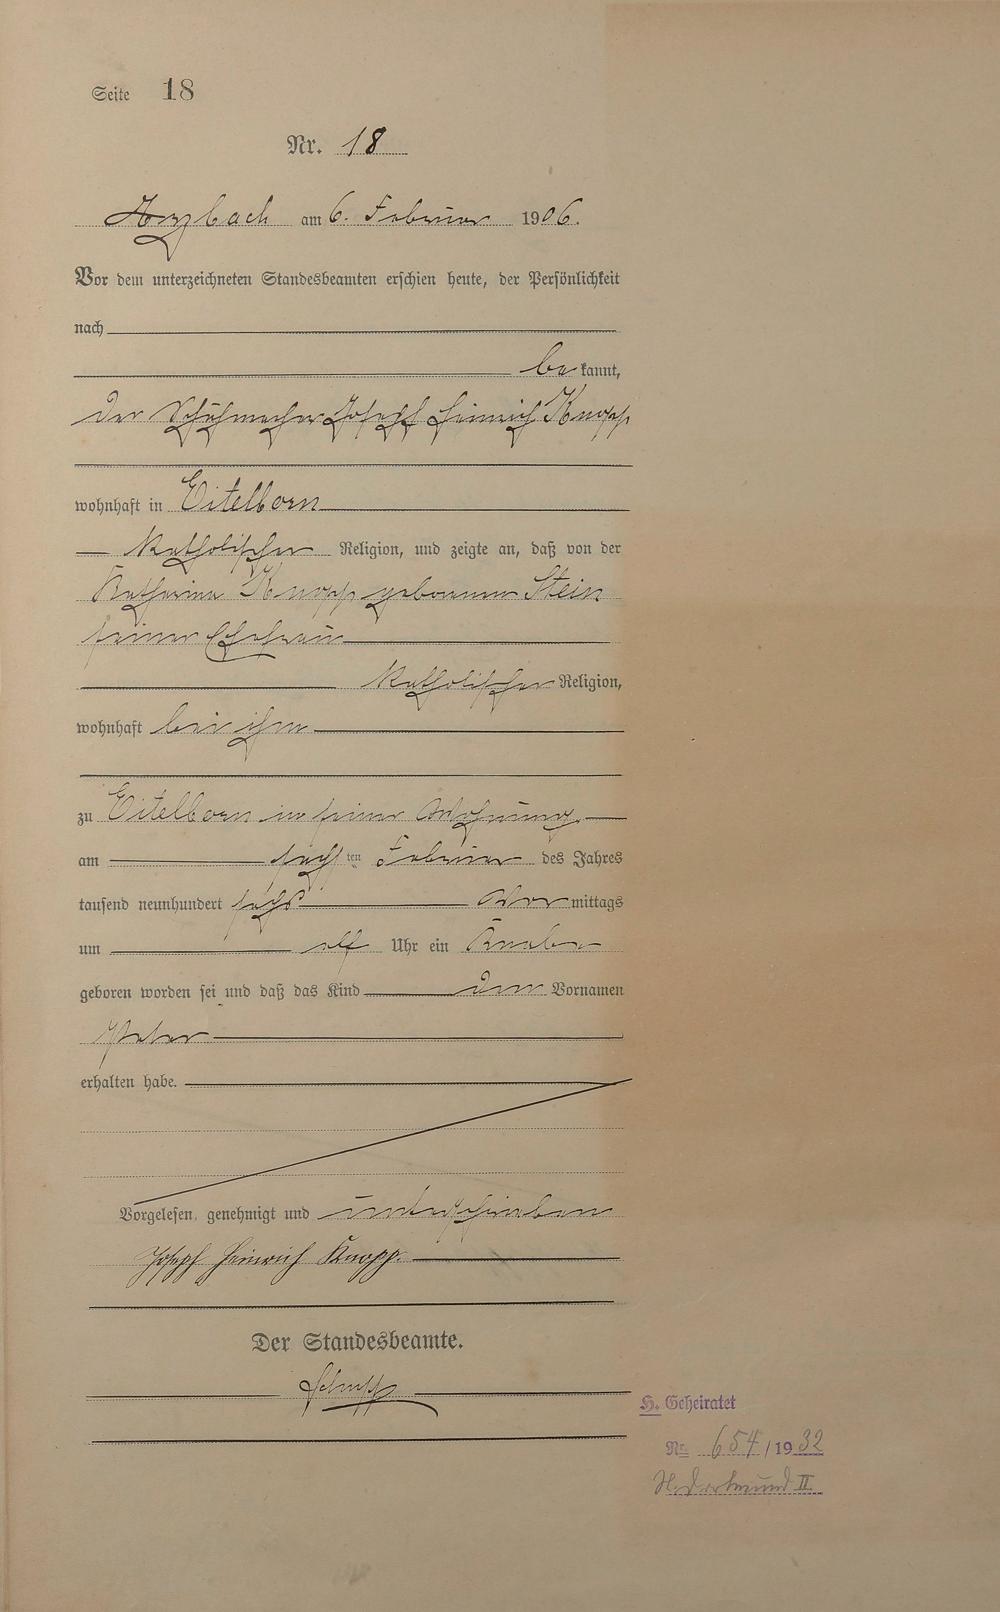 Seite 18
Nr. 18
Arzbach am 6. Februar 1906.
Vor dem unterzeichneten Standesbeamten erschien heute, der Persönlichkeit
nach
be kannt,
der Schuhmacher Joseph Heinrich Knopp
wohnhaft in Eitelborn
katholischer Religion, und zeigte an, daß von der
Katharina Knopp geborenen Stein
seiner Ehefrau
katholischer Religion,
wohnhaft bei ihm
zu Eitelborn in seiner Wohnung
am sechsten Februar des Jahres
tausend neunhundert sechs Vor mittags
um elf Uhr ein Knabe
geboren worden sei und daß das Kind den Vornamen
Peter
erhalten habe.
Vorgelesen, genehmigt und unterschrieben
Joseph Heinrich Knopp.
Der Standesbeamte.
H. Geheiratet
Nr. 654/1932
St. Dortmund II